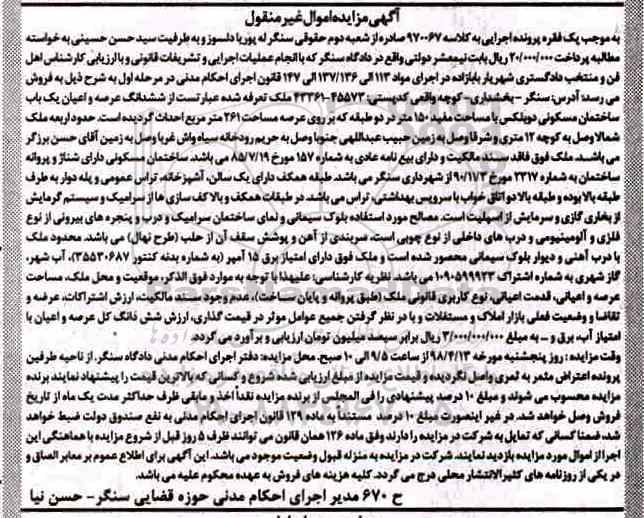 آگهی مزایده اموال غیر منقول
به موجب یک فقره پرونده اجرایی به کلاسه ۹۷۰۰۶۷ صادره از شعبه دوم حقوقی سنگر له پوریا دلسوز و به طرفیت سید حسن حسینی به خواسته
مطالبه پرداخت ۲۰/۰۰۰/۰۰۰ ریال بابت نیمعشر دولتی واقع در دادگاه سنگر که با انجام عملیات اجرایی و تشریفات قانونی و با ارزیابی کارشناس اهل
فن و منتخب دادگستری شهریار بابازاده در اجرای مواد ۱۱۳ الی ۱۳۷/۱۳۶ الی ۱۴۷ قانون اجرای احکام مدنی در مرحله اول به شرح ذیل به فروش
می رسد: آدرس: سنگر - بخشداری - کوچه واقعی کدپستی: ۴۵۵۷۳-۴۳۳۶۱ ملک تعرفه شده عبارتست از ششدانگ عرصه و اعیان یک باب
ساختمان مسکونی دوبلکس با مساحت مفید ۱۵۰ متر در دو طبقه که بر روی عرصه مساحت ۲۶۱ متر مربع احداث گردیده است. حدود اربعه ملک
شمالا وصل به کوچه ۱۲ متری و شرقا وصل به زمین حبیب عبداللهی جنوبا وصل به حریم رودخانه سیاه واش غربا وصل به زمین آقای حسن برزگر
می باشد. ملک فوق فاقد سند مالکیت و دارای بیع نامه عادی به شماره ۱۵۷ مورخ ۸۵/۷/۱۹ می باشد. ساختمان مسکونی دارای شناژ و پروانه
ساختمان به شماره ۲۳۱۷ مورخ ۹۰/۱۷۳ از شهرداری سنگر می باشد. طبقه همکف دارای یک سالن، آشپزخانه، تراس عمومی و پله دوار به طرف
طبقه بالا بوده و طبقه بالا دو اتاق خواب با سرویس بهداشتی، تراس می باشد. در طبقات همکف و بالا کف سازی ها از سرامیک و سیستم گرمایش
از بخاری گازی و سرمایش از اسپلیت است. مصالح مورد استفاده بلوک سیمانی و نمای ساختمان سرامیک و درب و پنجره های بیرونی از نوع
فلزی و آلومینیومی و درب های داخلی از نوع چوبی است، سربندی از آهن و پوشش سقف آن از حلب (طرح نهال) می باشد. محدود ملک
با درب آهنی و دیوار بلوک سیمانی محصور شده است و ملک فوق دارای امتیاز برق ۱۵ آمپر (به شماره بدنه کنتور ۳۵۵۳۰۶۸۷)، آب شهر،
گاز شهری به شماره اشتراک ۱۰۹۰۵۹۹۹۲۳ می باشد. نظریه کارشناسی: علیهذا با توجه به موارد فوق الذکر، موقعیت و محل ملک، مساحت
عرصه و اعیانی، قدمت اعیانی، نوع کاربری قانونی ملک (طبق پروانه و پایان ساخت)، عدم وجود سند مالکیت، ارزش اشتراکات، عرضه و
تقاضا و وضعیت فعلی بازار املاک و مستغلات و با در نظر گرفتن جمیع عوامل موثر در قیمت گذاری، ارزش شش دانگ کل عرصه و اعیان با
امتیاز آب، برق و ... به مبلغ ۳/۰۰۰/۰۰۰/۰۰۰ ریال برابر سیصد میلیون تومان ارزیابی و برآورد می گردد.
وقت مزایده: روز پنجشنبه مورخه ۹۸/۴/۱۳ از ساعت ۹/۵ الی ۱۰ صبح. محل مزایده: دفتر اجرای احکام مدنی دادگاه سنگر. از ناحیه طرفین
پرونده اعتراض مثمر به ثمری واصل نگردیده و قیمت مزایده از مبلغ ارزیابی شده شروع و کسانی که بالاترین قیمت را پیشنهاد نمایند برنده
مزایده محسوب می شوند و مبلغ ۱۰ درصد پیشنهادی را فی المجلس از برنده مزایده نقدا اخذ و مابقی ظرف حداکثر مدت یک ماه از تاریخ
فروش وصول خواهد شد. در غیر اینصورت مبلغ ۱۰ درصد مستندا به ماده ۱۲۹ قانون اجرای احکام مدنی به نفع صندوق دولت ضبط خواهد
شد، ضمنا کسانی که تمایل به شرکت در مزایده را دارند وفق ماده ۱۲۶ همان قانون می توانند ظرف ۵ روز قبل از شروع مزایده با هماهنگی این
اجرا از اموال مورد مزایده بازدید نمایند. شرکت در مزایده به منزله قبول وضعیت موجود می باشد. این آگهی برای اطلاع عموم بر معابر الصاق و
در یکی از روزنامه های کثیرالانتشار محلی درج می گردد. کلیه هزینه های فروش به عهده محکوم علیه می باشد.
ح ۶۷۰ مدیر اجرای احکام مدنی حوزه قضایی سنگر - حسن نیا